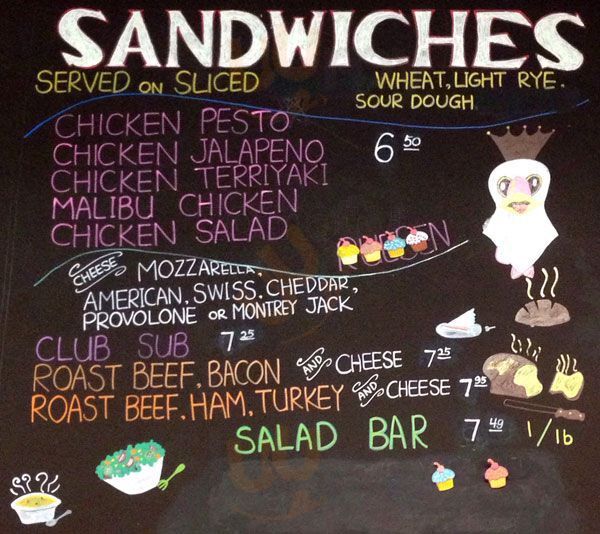 SANDWICHES
SERVED ON SLICED WHEAT, LIGHT RYE.
SOUR DOUGH
CHICKEN PESTO
CHICKEN JALAPENO 6 50
CHICKEN TERRIYAKI
MALIBU CHICKEN
CHICKEN SALAD
CHEESE MOZZARELLA,
AMERICAN, SWISS, CHEDDAR,
PROVOLONE OR MONTREY JACK
CLUB SUB 7 25
ROAST BEEF, BACON AND CHEESE 7 25
ROAST BEEF, HAM, TURKEY AND CHEESE 7 95
SALAD BAR 7 49 1/lb